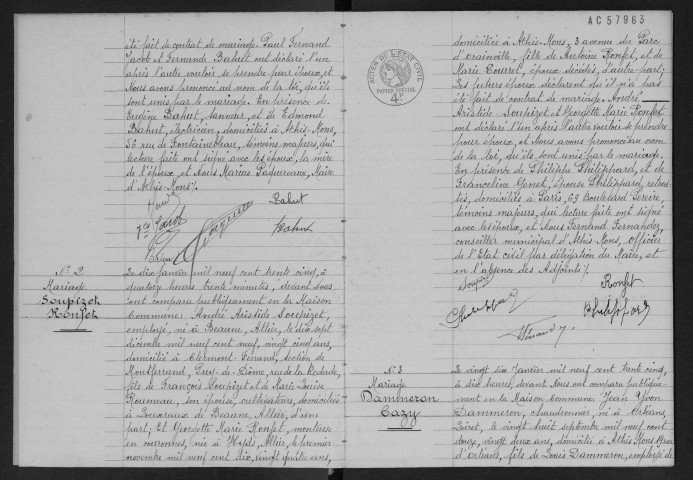 été fait de contrat de mariage. Paul Fernand
Jacob et Fernande Bahut ont déclaré l'un
après l'autre vouloir se prendre pour époux, et
Nous avons prononcé au nom de la loi, qu'ils
sont unis par le mariage. En présence de
Eugène Bahut, vanneur, et de Edmond
Bahut, électricien, domiciliés à Athis-Mons,
56 rue de Fontainebleau, témoins majeurs, qui
lecture faite ont signé avec les époux, la mère
de l'époux et Nous Marius Maire
d'Athis-Mons./.
Bahut
Jacob
Bahut
N° 2
Mariage
Soupizet
Ronfet
Le dix Janvier mil neuf cent trente cinq, à
quatorze heures trente minutes, devant Nous
ont comparu publiquement en la Maison
Commune: André Aristide Soupizet,
employé, né à Beaune, Allier, le dix sept
décembre mil neuf cent neuf, vingt cinq ans,
domicilié à Clermont Ferrand, section de
Montferrand, Puy-de-Dôme, rue de la
fils de François Soupizet et de Marie Louise
son épouse, cultivateurs, domiciliés
à de Beaune, Allier, d'une
part; Et Georgette Marie Ronfet, monteuse
en couronnes, née à Hyds, Allier, le premier
novembre mil neuf cent dix, vingt quatre ans,
AC57963
ACTES DE L'ETAT CIVIL
PAPIER SPECIAL
4F
domiciliée à Athis-Mons, 3 avenue du Parc
d'Orainville, fille de Antoine Ronfet, et de
Marie Courret, époux décédés, d'autre part;
Les futurs époux déclarent qu'il n'a pas
été fait de contrat de mariage. André
Aristide Soupizet et Georgette Marie Ronfet
ont déclaré l'un après l'autre vouloir se prendre
pour époux, et Nous avons prononcé au nom
de la loi, qu'ils sont unis par le mariage.
En présence de Philippe Philippard, et de
Franceline Gomet, épouse Philippard,
domiciliés à Paris, 69 Boulevard Pereire,
témoins majeurs, qui lecture faite ont signé
avec les époux, et Nous Fernand Fernandez,
conseiller municipal d'Athis-Mons, officier
de l'Etat civil par délégation du Maire, et
en l'absence des Adjoints./.
Soupizet
Ronfet
Philippard
N° 3
Mariage
Dammeron
Cazy
Le vingt six Janvier mil neuf cent trente cinq,
à dix heures, devant Nous ont comparu publique-
ment en la Maison Commune: Jean Yvon
Dammeron, chaudronnier, né à Orléans,
Loiret, le vingt huit septembre mil neuf cent
douze, vingt deux ans, domicilié à Athis-Mons,
d'Orléans, fils de Louis Dammeron, employé de